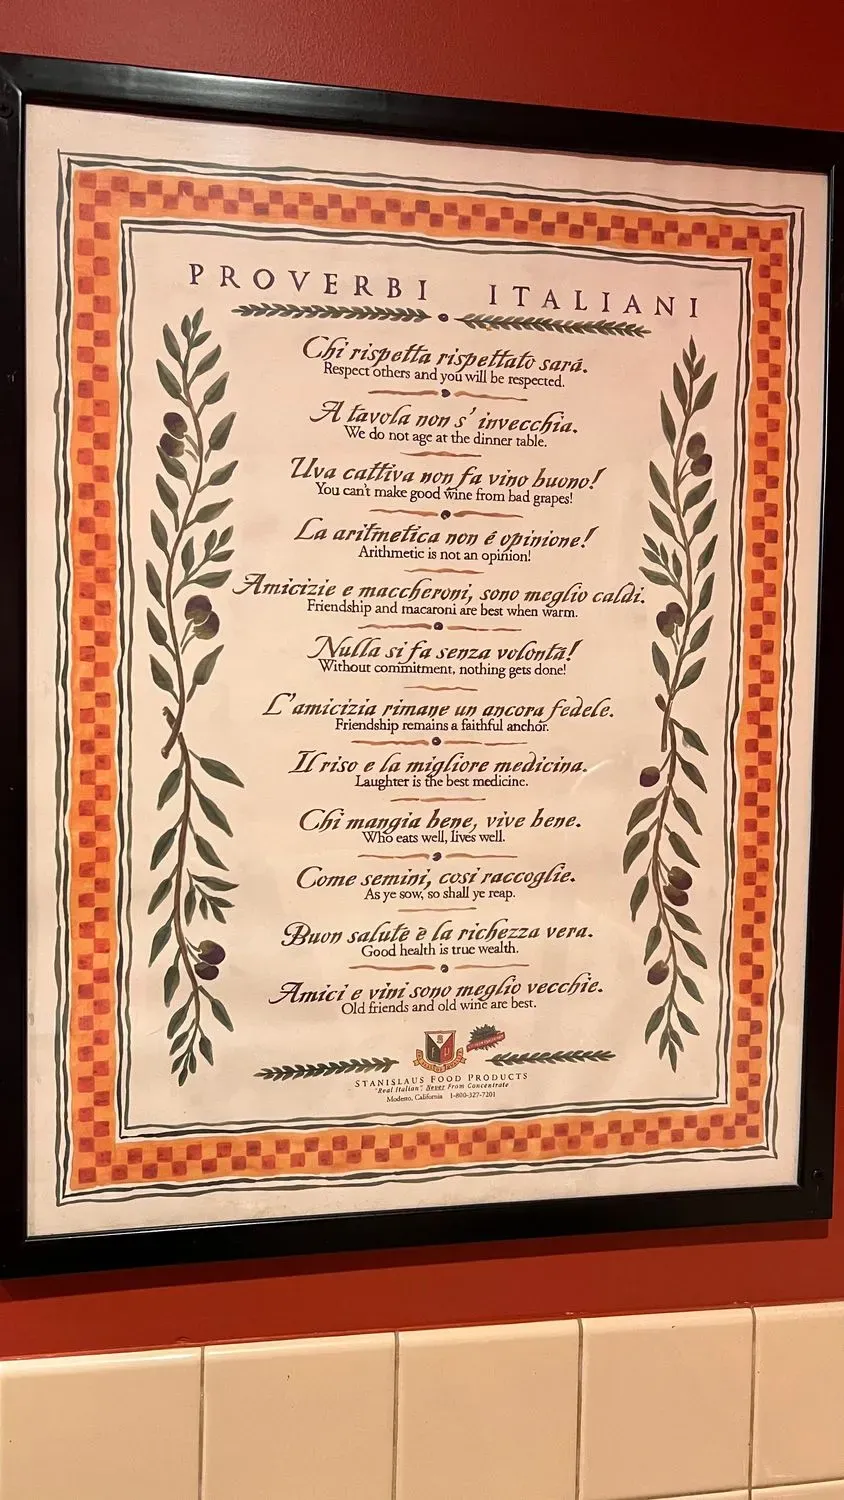 PROVERBI ITALIANI
Chi rispetta rispettato sará.
Respect others and you will be respected.
A tavola non s' invecchia.
We do not age at the dinner table.
Uva cattiva non fa vino buono!
You can't make good wine from bad grapes!
La aritmetica non é opinione!
Arithmetic is not an opinion!
Amicizie e maccheroni, sono meglio caldi.
Friendship and macaroni are best when warm.
Nulla si fa senza volontá!
Without commitment, nothing gets done!
L'amicizia rimane un ancora fedele.
Friendship remains a faithful anchor.
Il riso e la migliore medicina.
Laughter is the best medicine.
Chi mangia bene, vive bene.
Who eats well, lives well.
Come semini, cosi raccoglie.
As ye sow, so shall ye reap.
Buon salute è la richezza vera.
Good health is true wealth.
Amici e vini sono meglio vecchie.
Old friends and old wine are best.
STANISLAUS FOOD PRODUCTS
"Real Italian", Never From Concentrate
Modesto, California 1-800-327-7201